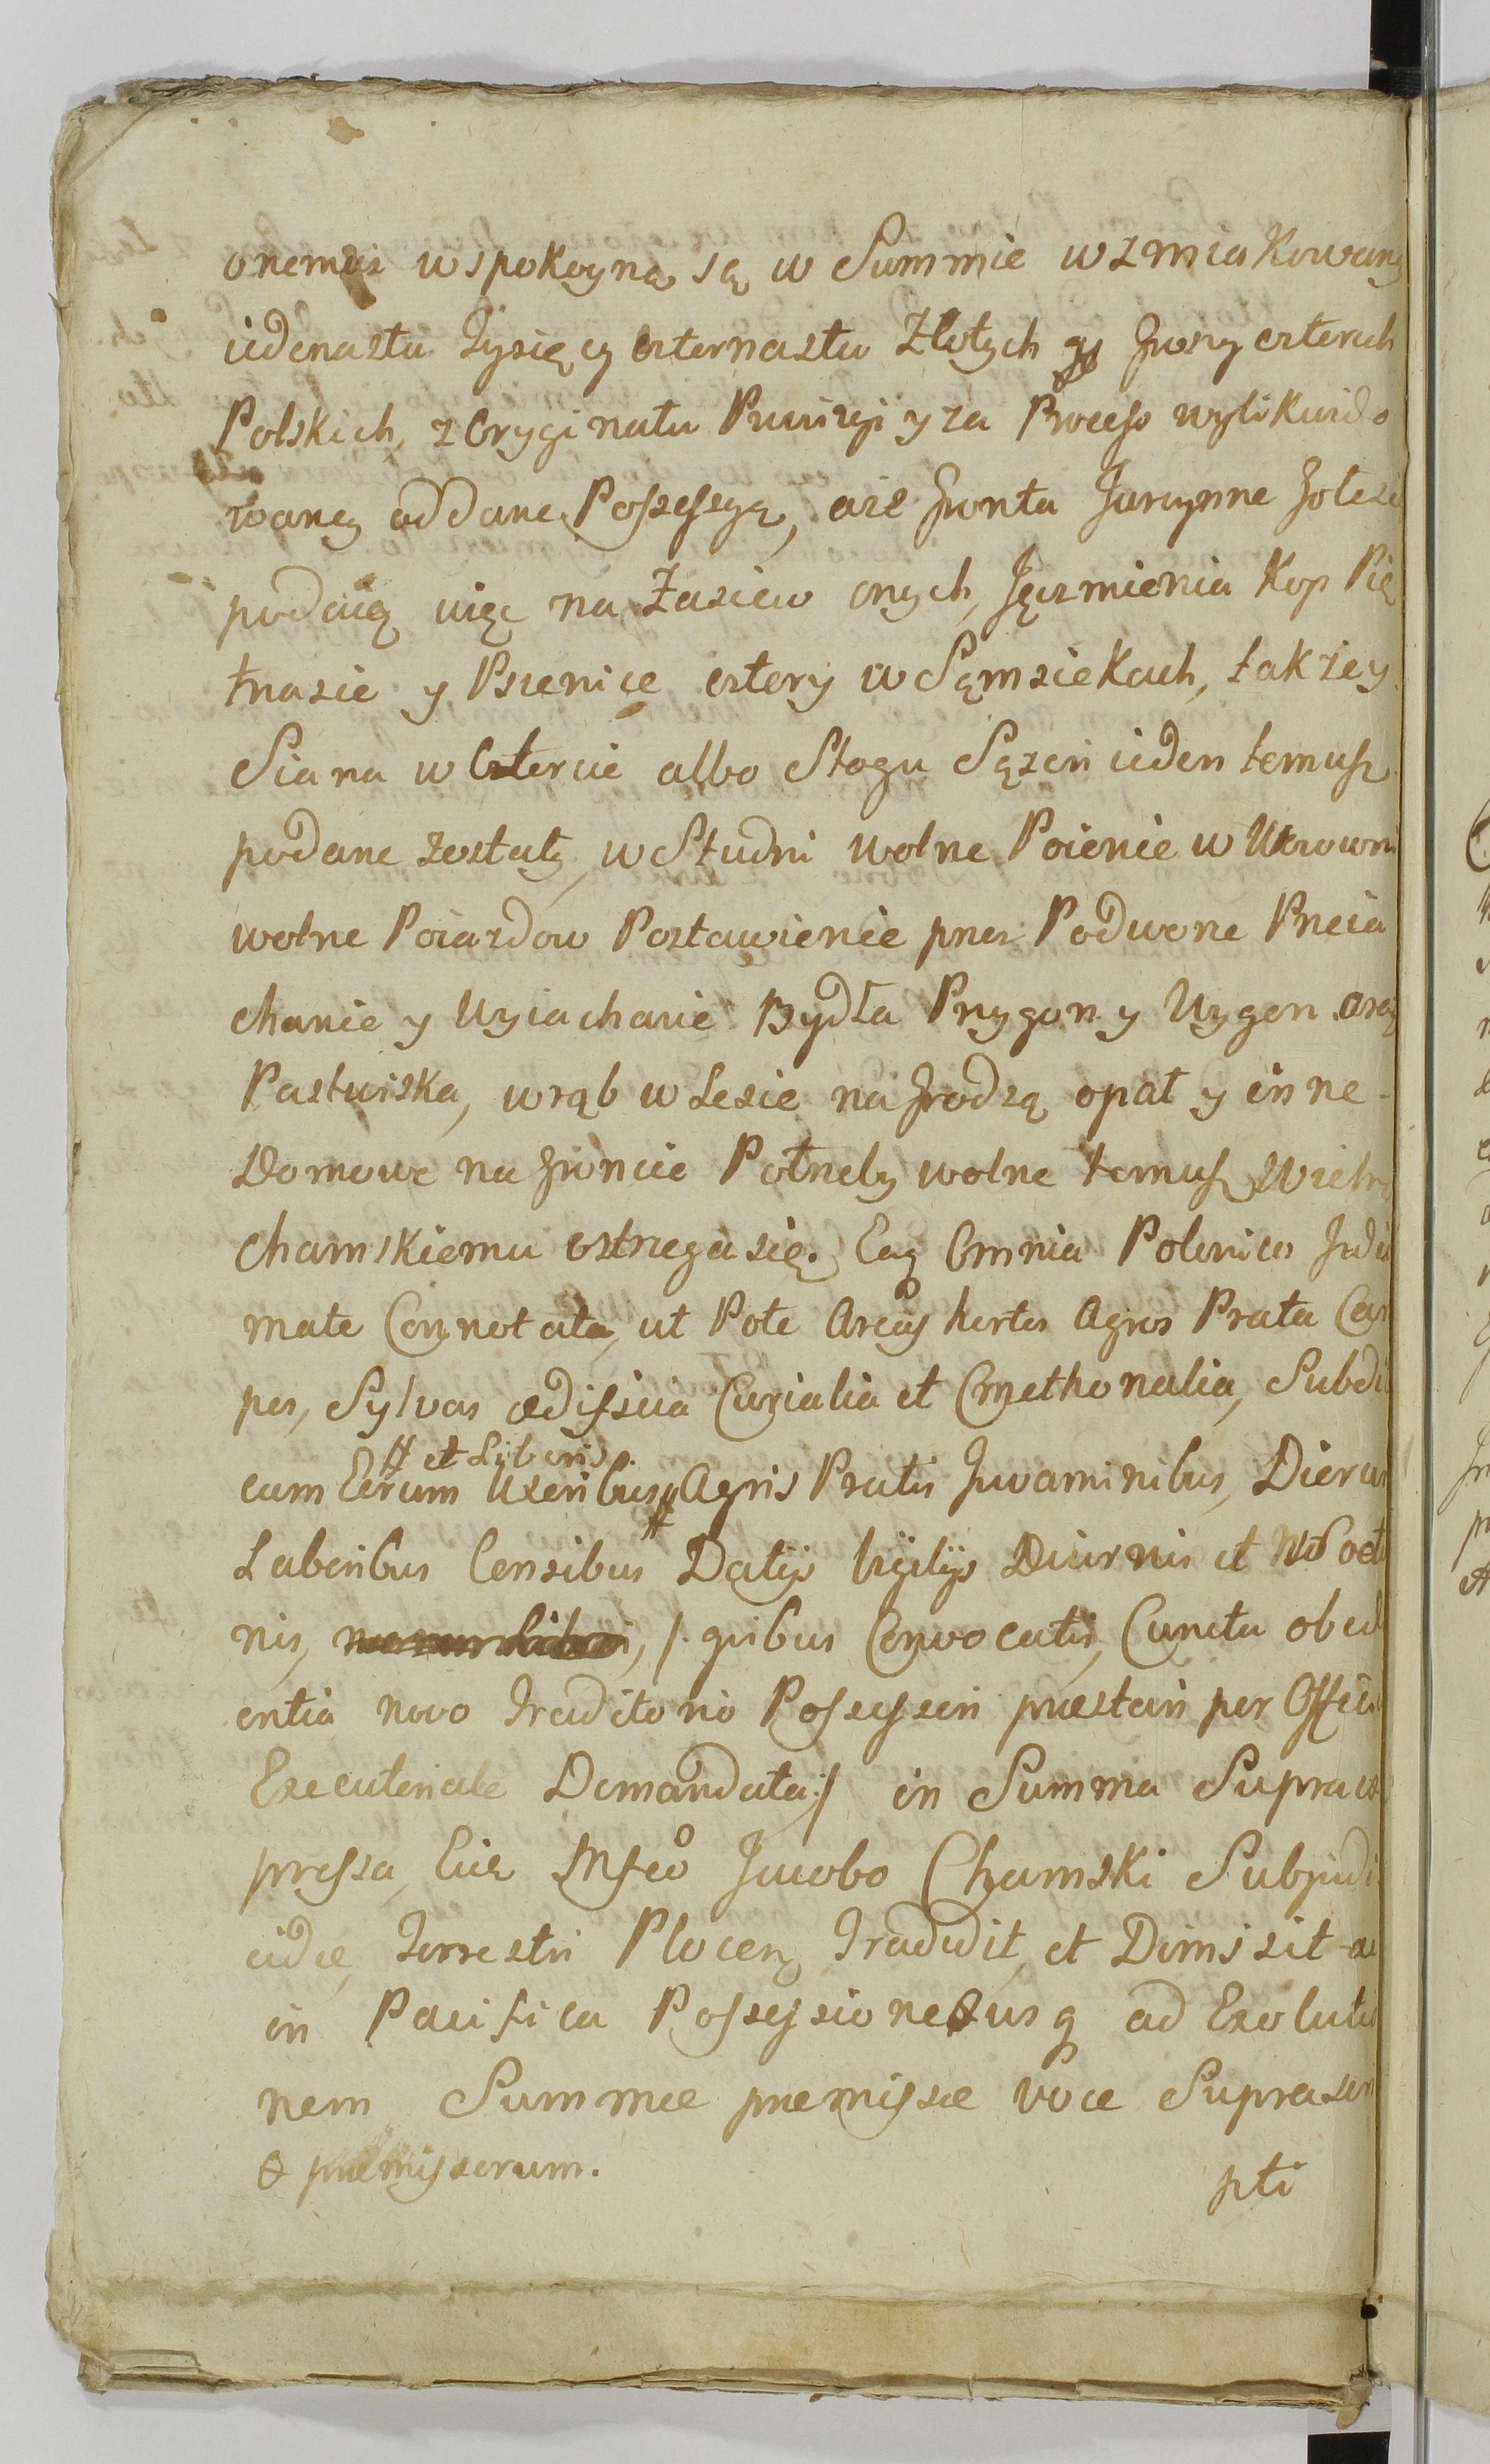 onemuż w spokoyną są w Summie wzmiakowaney
iedenastu Tysięcy czternastu Złotych gr Groszy czterech
Polskich, z Oryginału Prowizyi y za Process wylikwido
waney oddane Possessyą, aże Gronta Jarzynne Gołe
podaią więc na Zasiew onych, Jęczmienia Kop Pię
tnasie y Psienice cztery w Sąmsiekach, także y
Siana w Cztercie albo Stogu Sążeń ieden temusz
podane zostały, w Studni wolne Poienie w Wozowni
wolne Poiazdow Postawienie przez Podworze Przeia
chanie y Wyiachanie Bydła Przygon y Wygon oraz
Pastwiska, wrąb w Lesie na Grodzą opał y inne
Domowe na Gruncie Potrzeby wolne temusz Wielm
Chamskiemu ostrzega się. Eaq Omnia Polonico Idio
mate Connotata, ut Pote Areas hortos Agros Prata Cam
pos, Sylvas ædificia Curialia et Cmethonalia, Subdi
# et Liberis
cum Eorum Uxoribus # Agris Pratis Juvaminibus, Dierum
Laboribus Censibus Datijs Vigilijs Diurnis et Noctu
nis, /. quibus Convocatis, Cuncta obedi
entia novo Traditorio Possessori præstari per Officiu
Executoriale Demandata ./ in Summa Supra ex
pressa, Eidẽ Mfco Jacobo Chamski Subjudi
cidæ, Terrestri Plocen, Tradidit, et Dimissit ac
in Pacifica Possessione usq ad Exoluti
nem Summæ præmissæ voce Suprascri
& præmissorum.
pti